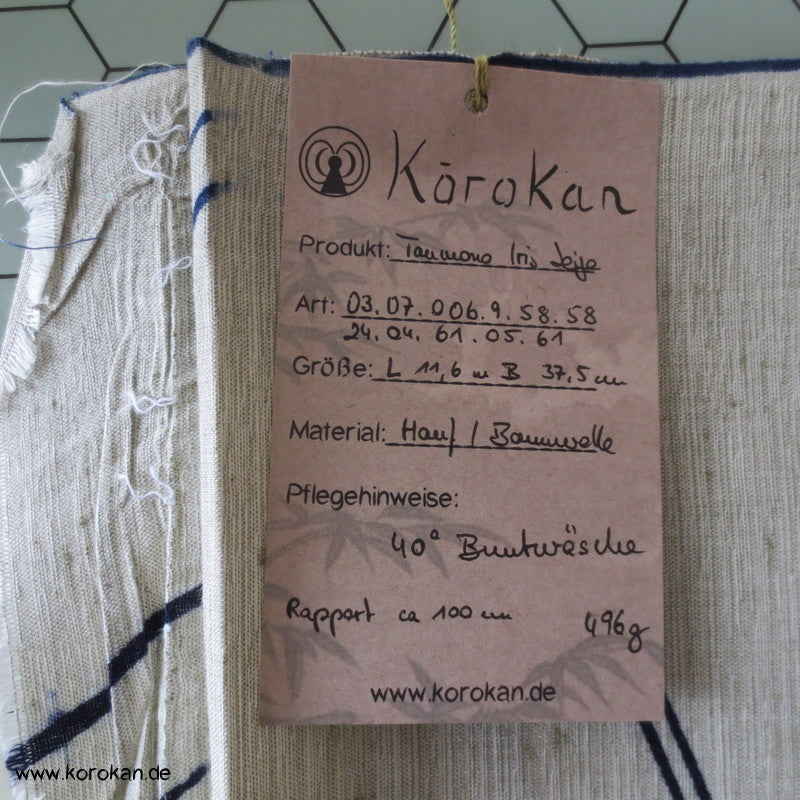 Kōrokan
Produkt: Tanmono Iris Beige
Art: 03.07.006.9.58.58
24.04.61.05.61
Größe: L 11,6 m B 37,5 cm
Material: Hanf / Baumwolle
Pflegehinweise:
40° Buntwäsche
Rapport ca 100 cm
496g
www.korokan.de
www.korokan.de